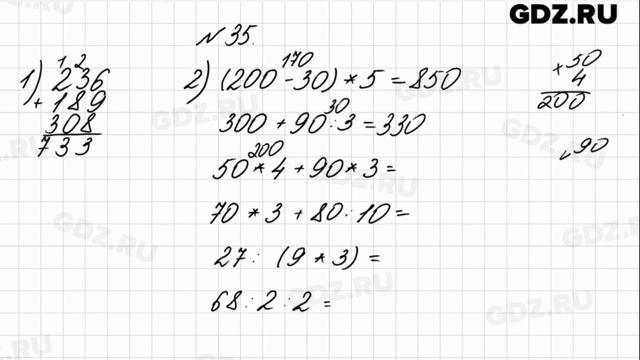 GDZ.RU
№35.
1) 236
+ 189
308
733
1 2
2) (200 - 30) * 5 = 850
170
300 + 90 : 3 = 330
30
50 * 4 + 90 * 3 =
200
70 * 3 + 80 : 10 =
27 : (9 * 3) =
68 : 2 : 2 =
× 50
4
200
90
GDZ.RU
GDZ.RU
GDZ.RU
GDZ.RU
GDZ.RU
GDZ.RU